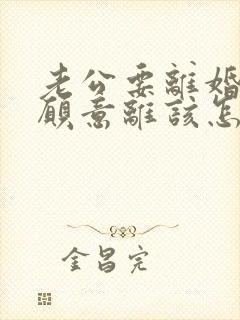 老公要離婚
願意離該怎
金昌完